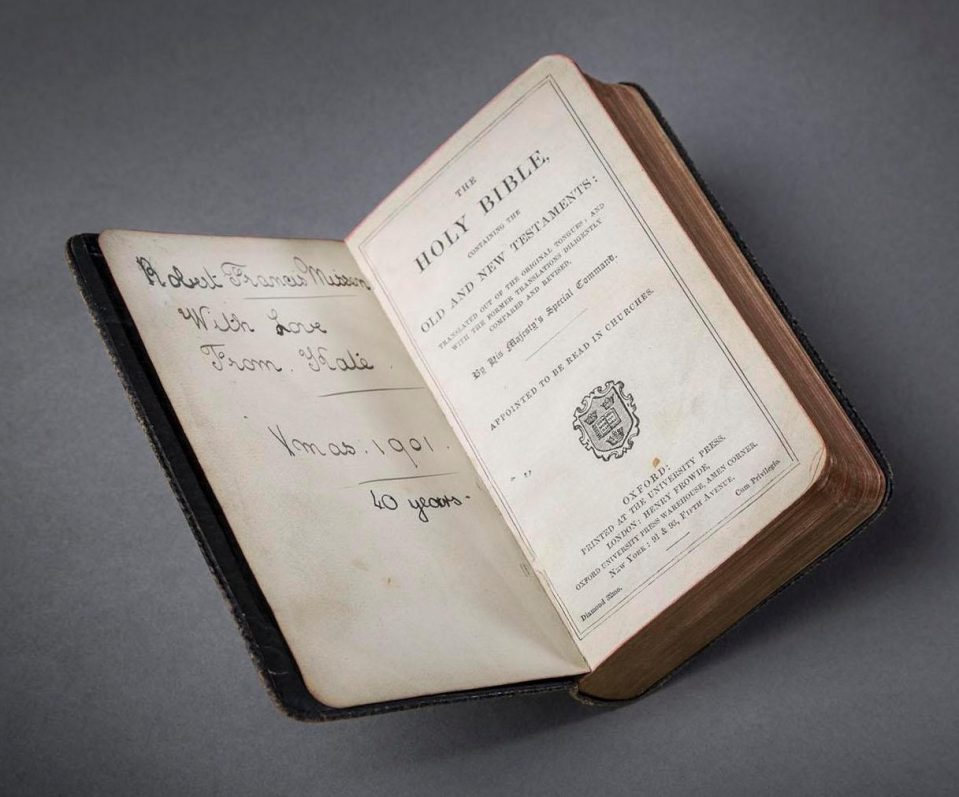 Robert Francis Mitson
With Love
From. Kate.
Xmas. 1901.
40 years.
THE
HOLY BIBLE,
CONTAINING THE
OLD AND NEW TESTAMENTS:
TRANSLATED OUT OF THE ORIGINAL TONGUES; AND
WITH THE FORMER TRANSLATIONS DILIGENTLY
COMPARED AND REVISED,
By His Majesty's Special Command.
APPOINTED TO BE READ IN CHURCHES.
OXFORD:
PRINTED AT THE UNIVERSITY PRESS.
LONDON: HENRY FROWDE,
OXFORD UNIVERSITY PRESS WAREHOUSE, AMEN CORNER.
NEW YORK: 91 & 93, FIFTH AVENUE.
Diamond 32mo.
Cum Privilegio.